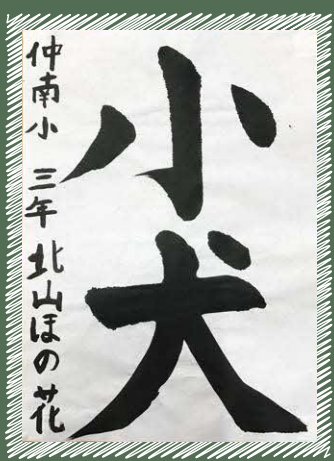 小犬
仲南小 三年 北山ほの花